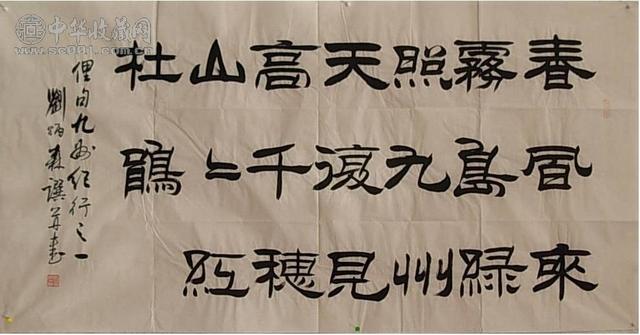 中华收藏网
www.sc001.com.cn
春風來
霧島綠
照九州
天復見
高千穗
山々紅
杜鵑
俚句九州紀行之一
劉炳森撰并書